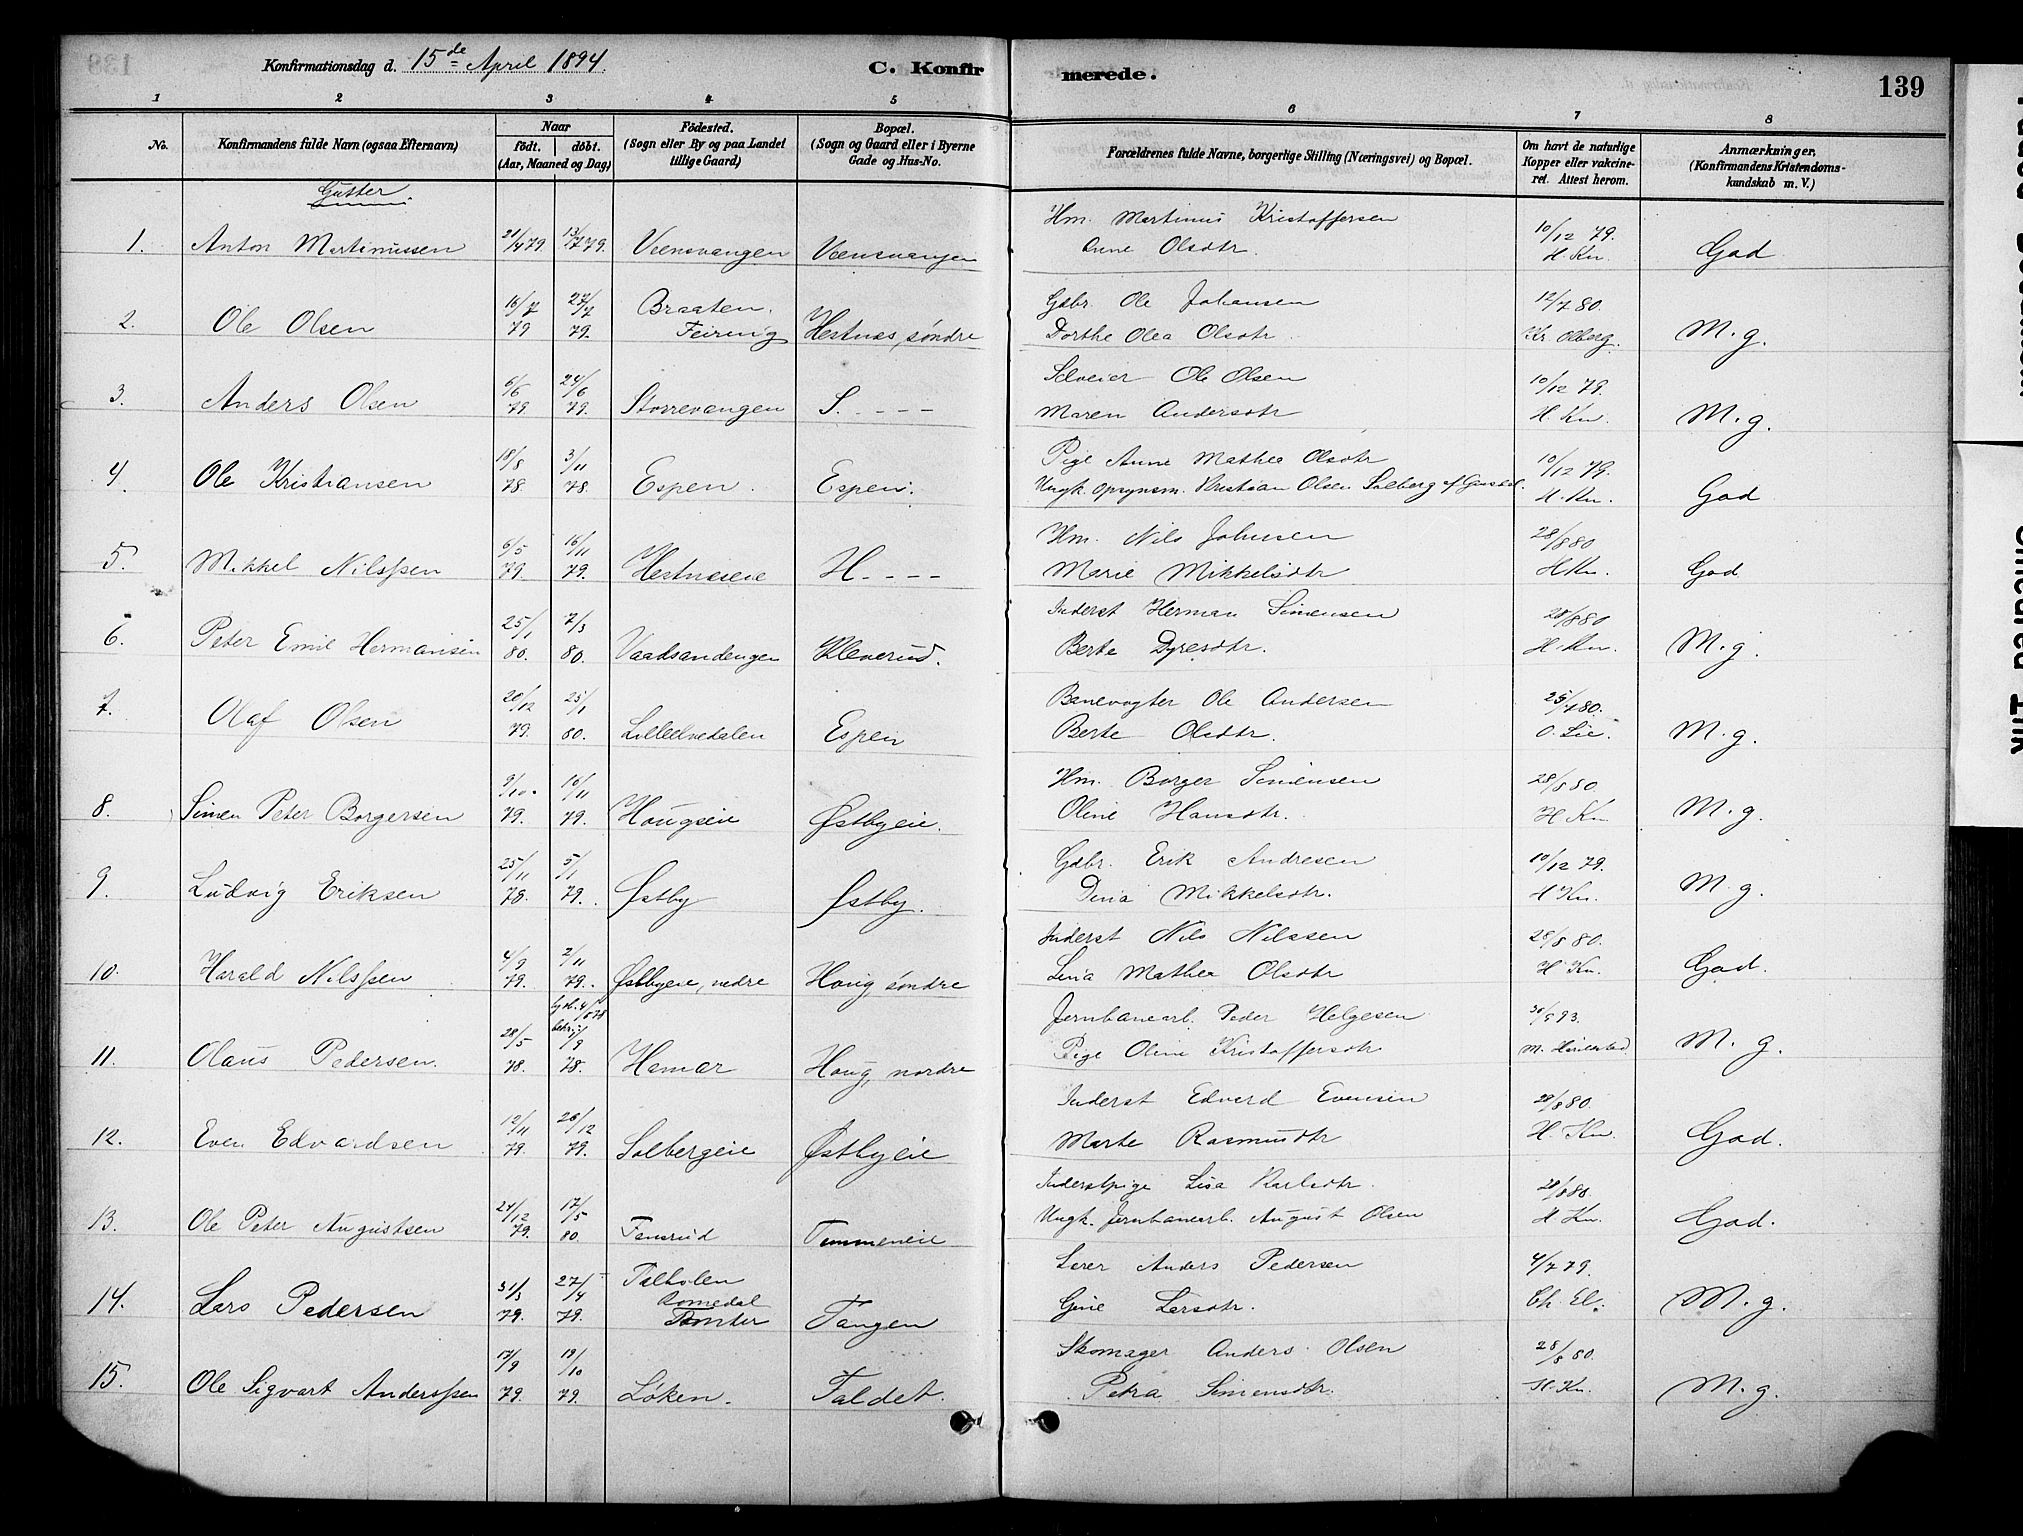 Konfirmationsdag d. 15de April 1894. C. Konfirmerede. 139
1 2 3 4 5 6 7 8
No. Konfirmandens fulde Navn (ogsaa Efternavn) Naar født. døbt. (Aar, Maaned og Dag) Fødested. (Sogn eller By og paa Landet tillige Gaard) Bopæl. (Sogn og Gaard eller i Byerne Gade og Hus-No. Forældrenes fulde Navne, borgerlige Stilling (Næringsvei) og Bopæl. Om havt de naturlige Kopper eller vakcineret. Attest herom. Anmærkninger, (Konfirmandens Kristendomskundskab m. V.)
Gutter
Hm. Martinus Kristoffersen
1. Anton Martinussen 21/4 79 13/7 79. Veensvangen Veensvangen Anne Olsdtr. 10/12 79. H. Kn. God
16/7 27/7 Braaten. Gdbr. Ole Johansen 12/7 80.
2. Ole Olsen 79 79. Feiring Hestnæs, søndre Dorthe Olea Olsdtr. Kr. Olberg. M. g.
6/6 24/6 Selveier Ole Olsen 10/12 79.
3. Anders Olsen 79 79. Storrevangen S. - - - - Maren Andersdtr H. Kn. M. g.
18/8 3/11 Pige Anne Mathea Olsdtr 10/12 79.
4. Ole Kristiansen 78 78. Espen. Espen. Ungk. Opsynsm. Kristian Olsen Solberg af H. Kn. God
6/5 16/11 Hm. Nils Johnsen 28/8 80
5. Mikkel Nilssen 79. 79. Hestnæseie H - - - - Marie Mikkelsdtr H Kn. God
25/1 7/3 Inderst Herman Simensen 28/8 80
6. Peter Emil Hermansen 80. 80. Vaadsandengen Kleverud. Berte Dyresdtr. H. Kn. M. g.
20/12 25/1 Banevogter Ole Andersen 25/7 80.
7. Olaf Olsen 79. 80. Lilleelvedalen Espen Berte Olsdtr. O. Lie. M. g.
9/10. 16/11 Hm. Borger Simensen 28/8 80
8. Simen Peter Borgersen 79. 79. Hougseie Østbyeie. Oline Hansdtr. H Kn M. g.
25/11 5/1 Gdbr. Erik Andresen 10/12 79.
9. Ludvig Eriksen 78. 79. Østby Østby. Dina Mikkelsdtr. H Kn. M. g.
4/9 2/11 Inderst Nils Nilssen 28/8 80.
10. Harald Nilssen 79. 79. Østbyeie, nedre Houg, søndre Lina Mathea Olsdtr H Kn. God.
28/5 Jernbanearb. Peder Helgesen 30/5 93.
11. Olaus Pedersen. 78. 78. Hamar Houg, nordre Pige Oline Kristoffersdtr M. g.
12/11 26/12 Inderst Edvard Evensen 28/8 80.
12. Even Edvardsen 79. 79. Solbergeie Østbyeie Marte Rasmusdtr H. Kn. God.
24/12 17/5 Inderstpige Lisa Karlsdtr. 28/8 80.
13. Ole Peter Augustsen 79. 80. Fansrud Tommeneie Ungk. Jernbanearb. August Olsen H Kn. God.
31/3 27/4 Romedal Lærer Anders Pedersen 4/7 79.
14. Lars Pedersen 79. 79. Tomter Tangen Gine Larsdtr. Ch. El. M. g.
17/9 19/10 Skomager Anders Olsen 28/8 80.
15. Ole Sigvart Anderssen 79. 79. Løken. Faldet. Petra Simensdtr. H. Kn. M. g.